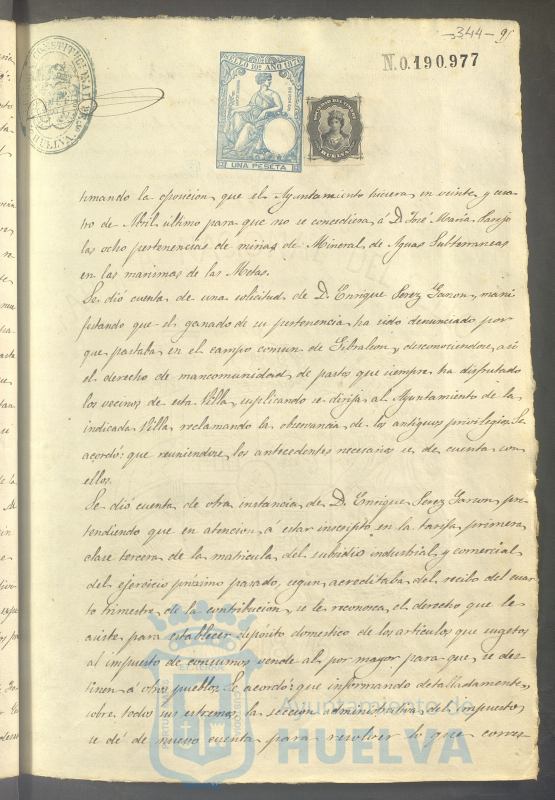 -344- 95
N.0.190.977
SELLO 11º AÑO 187
UNA PESETA
HUELVA
timando la oposicion, que el Ayuntamiento hiciera, en veinte y cua-
tro de Abril último para que no se concediera á D. José María Parejo
las ocho pertenencias de minas de Mineral de Aguas Subterraneas
en las marismas de las Metas.
Se dió cuenta de una solicitud de D. Enrique Perez Garzon, mani-
festando que el ganado de su pertenencia, ha sido denunciado, por
que pastaba en el campo comun de Gibraleon, desconociendose, asi
el derecho de mancomunidad de pastos que siempre ha disfrutado
los vecinos de esta Villa, suplicando se dirija al Ayuntamiento de la
indicada Villa reclamando la observancia de los antiguos privilegios. Se
acordó: que reuniendose los antecedentes necesarios se dé cuenta con
ellos.
Se dió cuenta de otra instancia de D. Enrique Perez Garzon, pre-
tendiendo que en atencion á estar inscripto en la tarifa primera
clase tercera de la matricula del subsidio industrial y comercial
del ejercicio proximo pasado, segun acreditaba del recibo del cuar-
to trimestre de la contribucion, se le reconozca el derecho que le
asiste para establecer depósito domestico de los articulos que sugetos
al impuesto de consumos vende al por mayor para que se des-
tinen á otros pueblos. Se acordó: que informando detalladamente,
sobre todos sus estremos, la seccion administrativa del impuesto
se dé de nuevo cuenta para resolver lo que corres-
Ayuntamiento de
HUELVA